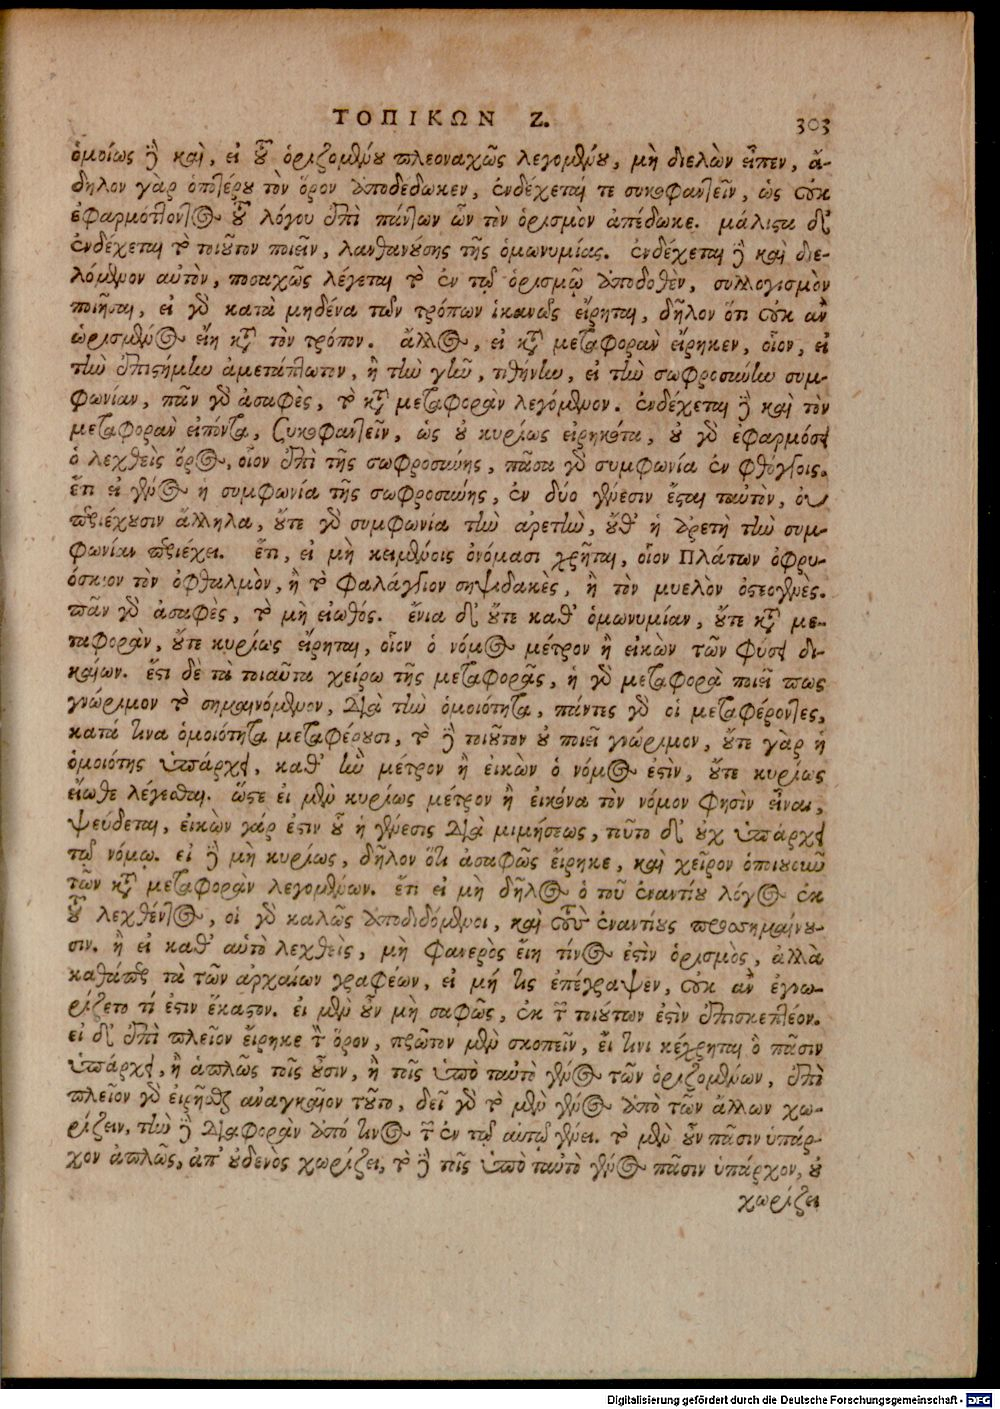 ΤΟΠΙΚΩΝ Ζ. 303
ὁμοίως δὲ καὶ, εἰ τοῦ ὁριζομένου πλεοναχῶς λεγομένου, μὴ διελὼν εἶπεν, ἄ-
δηλον γὰρ ὁποτέρου τὸν ὅρον ἀποδέδωκεν, ἐνδέχεταί τε συκοφαντεῖν, ὡς οὐκ
ἐφαρμόττοντος τοῦ λόγου ἐπὶ πάντων ὧν τὸν ὁρισμὸν ἀπέδωκε. μάλιστα δ'
ἐνδέχεται τὸ τοιοῦτον ποιεῖν, λανθανούσης τῆς ὁμωνυμίας. ἐνδέχεται δὲ καὶ διε-
λόμενον αὐτὸν, ποσαχῶς λέγεται τὸ ἐν τῷ ὁρισμῷ ἀποδοθὲν, συλλογισμὸν
ποιῆσαι, εἰ γὰρ κατὰ μηδένα τῶν τρόπων ἱκανῶς εἴρηται, δῆλον ὅτι οὐκ ἂν
ὡρισμένος εἴη κατὰ τὸν τρόπον. ἄλλος, εἰ κατὰ μεταφορὰν εἴρηκεν, οἷον, εἰ
τὴν ἐπιστήμην ἀμετάπτωτον, ἢ τὴν γῆν, τιθήνην, εἰ τὴν σωφροσύνην συμ-
φωνίαν, πᾶν γὰρ ἀσαφὲς, τὸ κατὰ μεταφορὰν λεγόμενον. ἐνδέχεται δὲ καὶ τὸν
μεταφορὰν εἰπόντα, συκοφαντεῖν, ὡς οὐ κυρίως εἰρηκότα, οὐ γὰρ ἐφαρμόσει
ὁ λεχθεὶς ὅρος, οἷον ἐπὶ τῆς σωφροσύνης, πᾶσα γὰρ συμφωνία ἐν φθόγγοις.
ἔτι εἰ γένος ἡ συμφωνία τῆς σωφροσύνης, ἐν δύο γένεσιν ἔσται ταὐτὸν, οὐ
περιέχουσιν ἄλληλα, οὔτε γὰρ συμφωνία τὴν ἀρετὴν, οὔθ' ἡ ἀρετὴ τὴν συμ-
φωνίαν περιέχει. ἔτι, εἰ μὴ κειμένοις ὀνόμασι χρῆται, οἷον Πλάτων ὀφρυ-
όσκιον τὸν ὀφθαλμὸν, ἢ τὸ φαλάγγιον σηψιδακὲς, ἢ τὸν μυελὸν ὀστεογενές.
πᾶν γὰρ ἀσαφὲς, τὸ μὴ εἰωθός. ἔνια δ' οὔτε καθ' ὁμωνυμίαν, οὔτε κατὰ με-
ταφορὰν, οὔτε κυρίως εἴρηται, οἷον ὁ νόμος μέτρον ἢ εἰκὼν τῶν φύσει δι-
καίων. ἔστι δὲ τὰ τοιαῦτα χείρω τῆς μεταφορᾶς, ἡ γὰρ μεταφορὰ ποιεῖ πως
γνώριμον τὸ σημαινόμενον, διὰ τὴν ὁμοιότητα, πάντες γὰρ οἱ μεταφέροντες,
κατά τινα ὁμοιότητα μεταφέρουσι, τὸ δὲ τοιοῦτον οὐ ποιεῖ γνώριμον, οὔτε γὰρ ἡ
ὁμοιότης ὑπάρχει, καθ' ἣν μέτρον ἢ εἰκὼν ὁ νόμος ἐστὶν, οὔτε κυρίως
εἴωθε λέγεσθαι. ὥστε εἰ μὲν κυρίως μέτρον ἢ εἰκόνα τὸν νόμον φησὶν εἶναι,
ψεύδεται, εἰκὼν γάρ ἐστιν οὗ ἡ γένεσις διὰ μιμήσεως, τοῦτο δ' οὐχ ὑπάρχει
τῷ νόμῳ. εἰ δὲ μὴ κυρίως, δῆλον ὅτι ἀσαφῶς εἴρηκε, καὶ χεῖρον ὁποιουοῦν
τῶν κατὰ μεταφορὰν λεγομένων. ἔτι εἰ μὴ δῆλος ὁ τοῦ ἐναντίου λόγος ἐκ
τοῦ λεχθέντος, οἱ γὰρ καλῶς ἀποδιδόμενοι, καὶ τοὺς ἐναντίους προσσημαίνου-
σιν. ἢ εἰ καθ' αὑτὸ λεχθεὶς, μὴ φανερὸς εἴη τίνος ἐστὶν ὁρισμὸς, ἀλλὰ
καθάπερ τὰ τῶν ἀρχαίων γραφέων, εἰ μή τις ἐπέγραψεν, οὐκ ἂν ἐγνω-
ρίζετο τί ἐστιν ἕκαστον. εἰ μὲν οὖν μὴ σαφῶς, ἐκ τῶν τοιούτων ἐστὶν ἐπισκεπτέον.
εἰ δ' ἐπὶ πλεῖον εἴρηκε τὸν ὅρον, πρῶτον μὲν σκοπεῖν, εἴ τινι κέχρηται ὃ πᾶσιν
ὑπάρχει, ἢ ἁπλῶς τοῖς οὖσιν, ἢ τοῖς ὑπὸ ταὐτὸ γένος τῶν ὁριζομένων, ἐπὶ
πλεῖον γὰρ εἰρῆσθαι ἀναγκαῖον τοῦτο, δεῖ γὰρ τὸ μὲν γένος ἀπὸ τῶν ἄλλων χω-
ρίζειν, τὴν δὲ διαφορὰν ἀπό τινος τῶν ἐν τῷ αὐτῷ γένει. τὸ μὲν οὖν πᾶσιν ὑπάρ-
χον ἁπλῶς, ἀπ' οὐδενὸς χωρίζει, τὸ δὲ τοῖς ὑπὸ ταὐτὸ γένος πᾶσιν ὑπάρχον, οὐ
χωρίζει
Digitalisierung gefördert durch die Deutsche Forschungsgemeinschaft - DFG